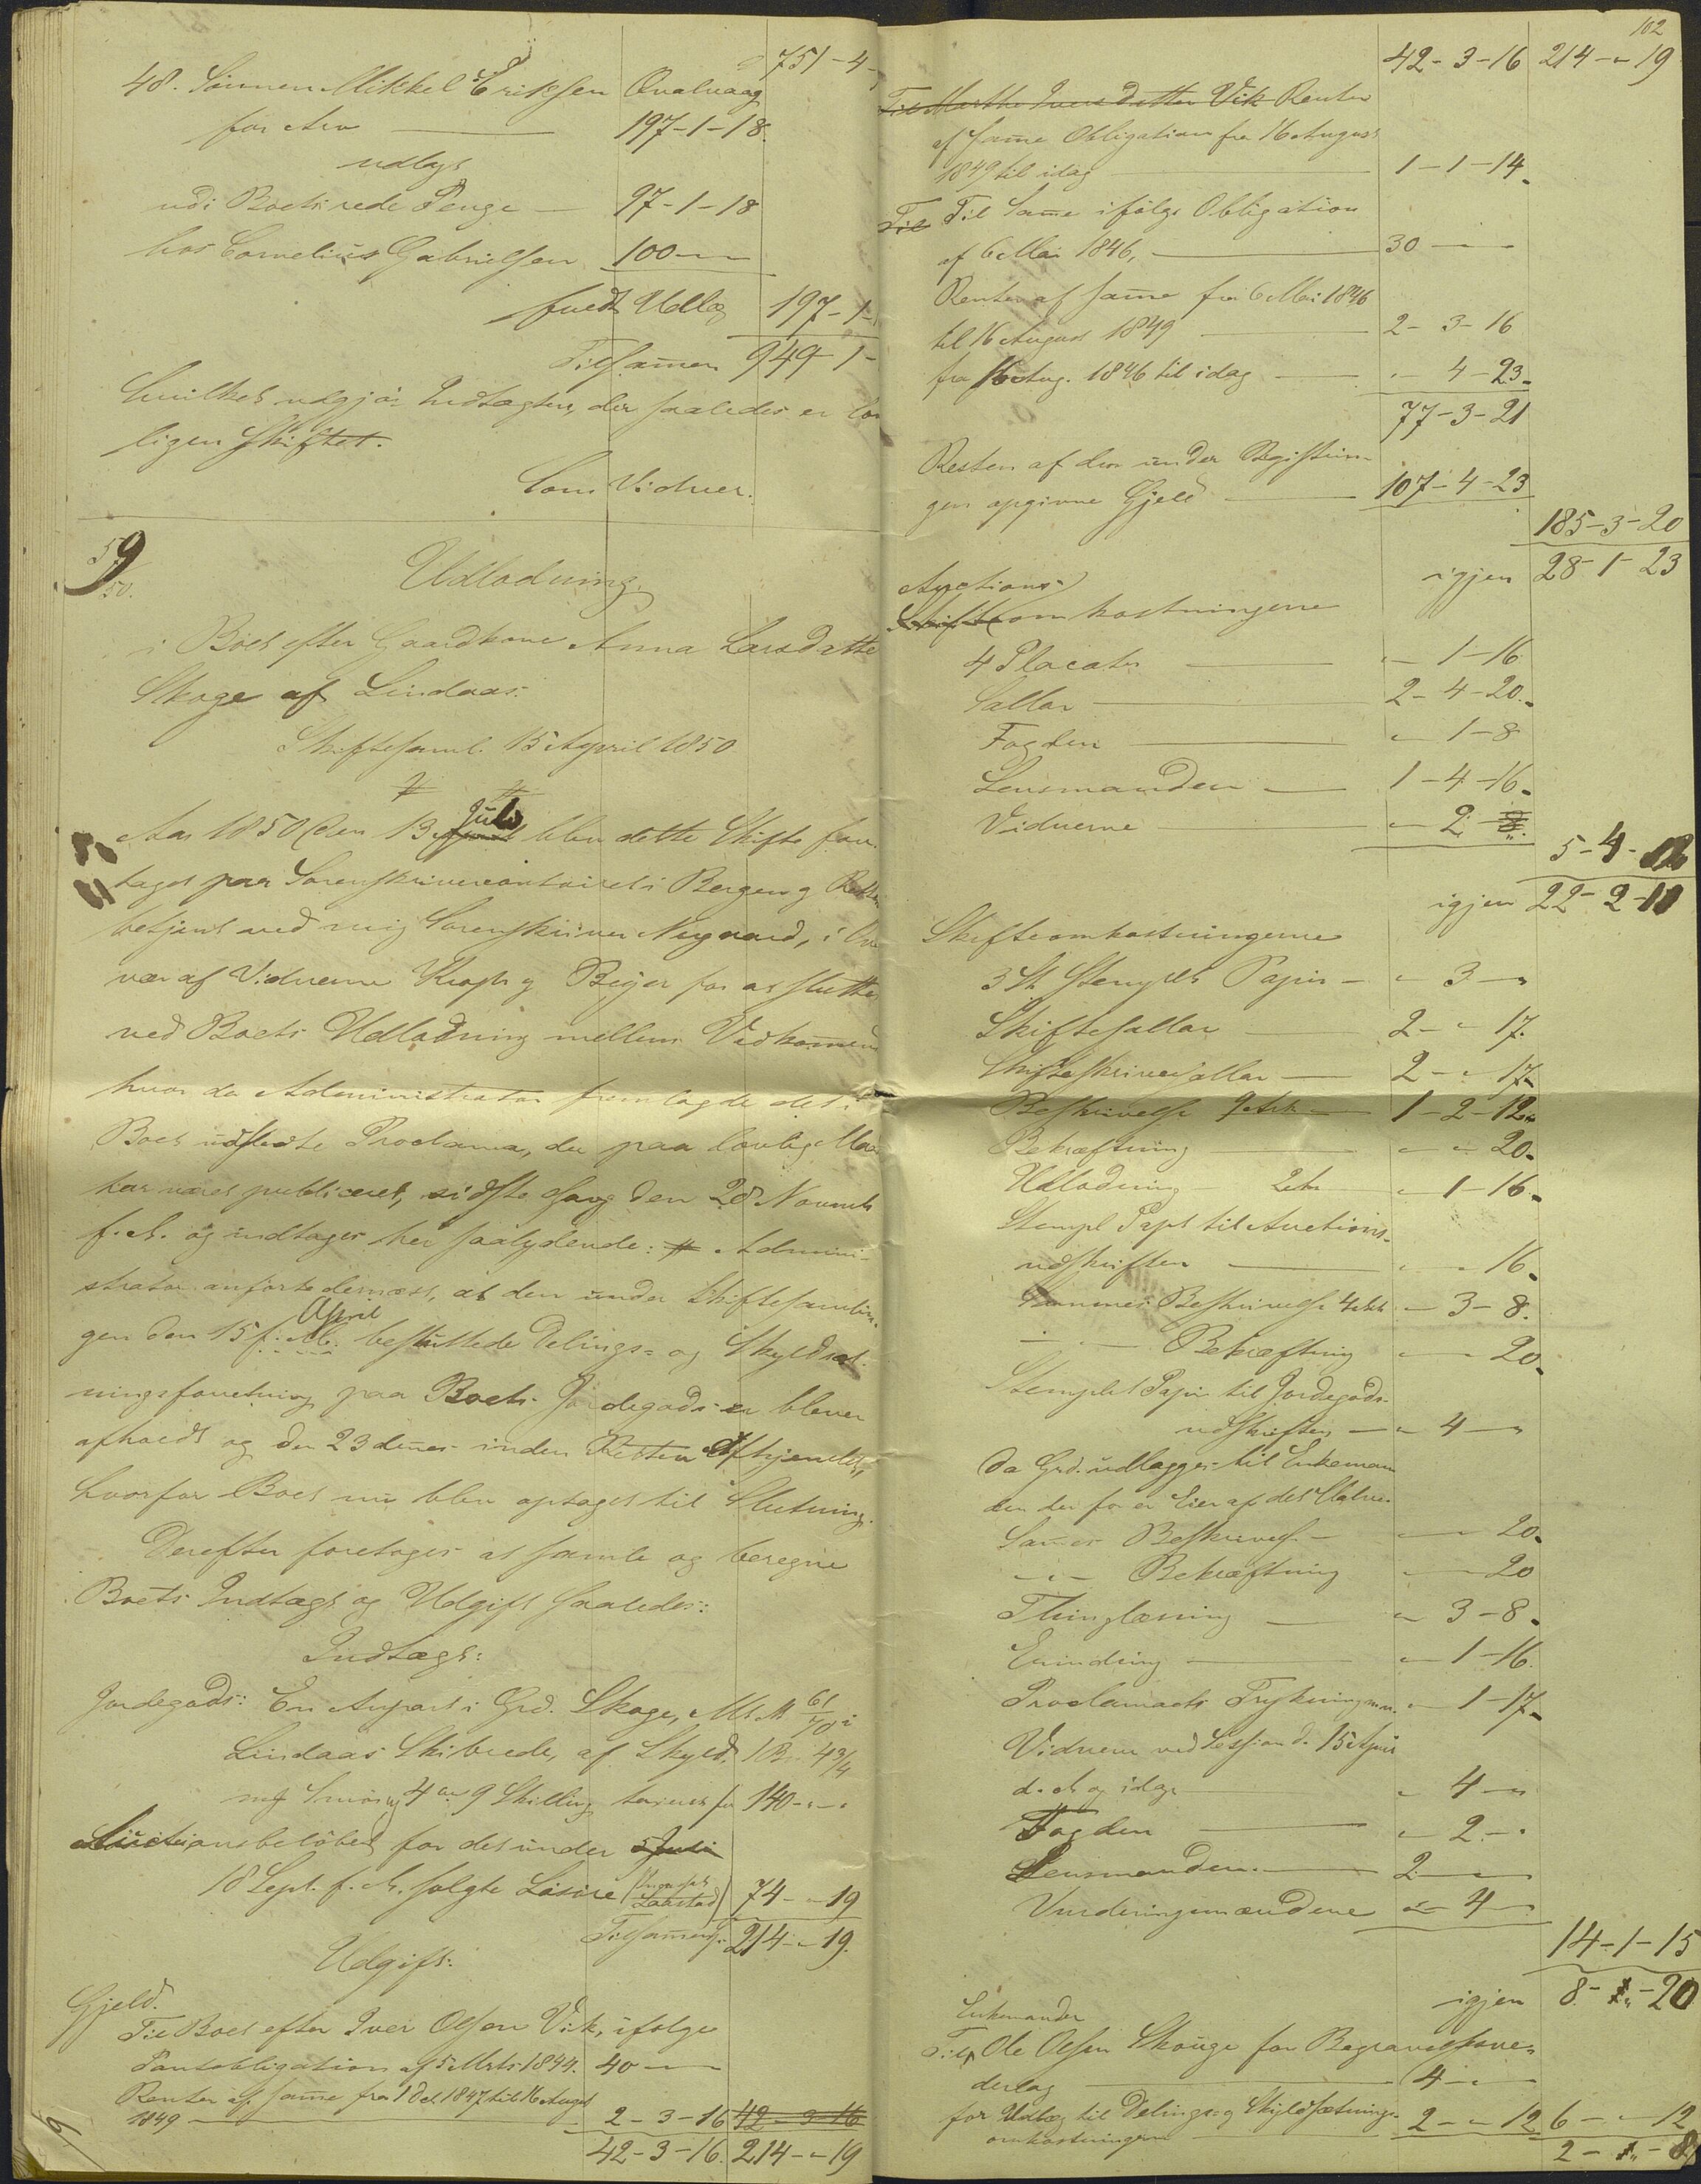 751-4-
48. Sønnen Mikkel Eriksen Qvalvaag
for Arv — 197-1-18.
udlagt
udi Boets rede Penge — 97-1-18
hos Cornelius Gabrielsen 100-"-"
skeedt Udlæg 197-1-
Tilsammen 949-1-
hvilket udgjør Indtægten, der saaledes er lov
ligen skiftet.
Som Vidner.
59/50.
Udlodning
i Boet efter Gaardkone Anna Larsdatte
Skoge af Lindaas.
Skiftesaml. 15 April 1850
Aar 1850 den 13 Juli blev dette Skifte fore
taget paa Sorenskrivercontoiret i Bergen og Retten
betjent ved mig Sorenskriver Nygaard, i Over
vær af Vidnerne Krogh og Beyer for at slutte
ved Boets Udlodning mellem Vedkommen
hvor da Administrator fremlagde det i
Boet udstedte Proclama, der paa lovlig Maa
har været publiceret, sidste Gang den 28 Novemb
f. A. og indtages her saalydende: # Admini-
strator anførte dernæst, at den under Skiftesamlin-
gen den 15 April besluttede Delings- og Skyldsæt-
ningsforretning paa Boets Jordegods er bleven
afholdt og den 23 dennes inden Retten afhjemlet,
hvorfor Boet nu blev optaget til Slutning.
Derefter foretoges at samle og beregne
Boets Indtægt og Udgift saaledes:
Indtægt:
Jordegods: En Anpart i Grd. Skoge, M. N. 61/70 i
Lindaas Skibrede, af Skyld 1 B. 4 3/4
mk Smør og 4 9 Skilling taxeret for 140-"-"
Auctionsbeløbet for det under
18 Sept. f. A. solgte Løsøre 74-"-19
Tilsammen 214-"-19.
Udgift:
Gjeld.
Til Boet efter Iver Olsen Vik, ifølge
Pantobligation af 5 Marts 1844. 40-"-"
Renter af samme fra 1 Oct. 1847 til 16 August
1849 — 2-3-16 42-3-16
42-3-16. 214-"-19
102
42-3-16 214-"-19
Til Marthe Iversdatter Vik Renter
af samme Obligation fra 16 August
1849 til idag — 1-1-14
Til Til Samme ifølge Obligation
af 6 Mai 1846, — 30-"-"
Renter af samme fra 6 Mai 1846
til 16 August 1849 — 2-3-16
fra 16 Aug. 1846 til idag — "-4-23
77-3-21
Resten af den under Registrin-
gen opgivne Gjeld — 107-4-23
185-3-20
igjen 28-1-23
Auctions-
Skifteomkostningerne
4 Placater — "-1-16
Sallar — 2-4-20.
Fogden — "-1-8
Lensmanden — 1-4-16
Vidnerne — "-2-
5-4-12
igjen 22-2-11
Skifteomkostningerne
3 St. Stemplet Papir — "-3-"
Skiftesallar — 2-"-17.
Skifteskriversallar — 2-"-17
Beskrivelse 9 Ark — 1-2-12
Bekræftning — "-"-20
Udlodning 2 Ark "-1-16
Stempl. Papir til Auctions-
udskriften — "-"-16
Sammes Beskrivelse 4 Ark "-3-8.
"-"- Bekræftning "-"-20
Stemplet Papir til Jordegods-
udskriften — "-4-"
da Grd. udlægges til Enkeman
den der før er Eier af det Øvrige
Sammes Beskrivelse — "-"-20
"-"- Bekræftning "-"-20
Thinglæsning — "-3-8
Erindring — "-1-16.
Proclamaets Trykning m.m. "-1-17
Vidnerne ved Session d. 15 April
d. A. og idag "-4-"
Fogden — "-2-"
Lensmanden — 2-"-"
Vurderingsmændene "-4-"
14-1-15
igjen 8-"-20
Enkemanden
Til Ole Olsen Skouge for Begravelsesve-
derlag — 4-"-"
for Udlæg til Delings- og Skyldsætnings-
omkostningerne 2-"-12 6-"-12
2-"-8